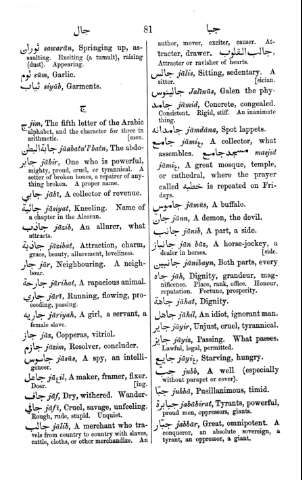 جال
81
جبا
ثوران sawarān, Springing up, as-
saulting. Exciting (a tumult), raising
(dust). Appearing.
ثوم sūm, Garlic.
ثياب siyāb, Garments.
ج
ج jīm, The fifth letter of the Arabic
alphabet, and the character for three in
arithmetic. [men.
جاءبةالبطن jāabatu'l'batn, The abdo-
جابر jābir, One who is powerful,
mighty, proud, cruel, or tyrannical. A
setter of broken bones, a repairer of any-
thing broken. A proper name.
جابي jābī, A collector of revenue.
جاثية jāsiyat, Kneeling. Name of
a chapter in the Alcoran.
جاذب jāzib, An allurer, what
attracts.
جاذبة jāzibat, Attraction, charm,
grace, beauty, allurement, loveliness.
جار jār, Neighbouring. A neigh-
bour.
جارحة jārihat, A rapacious animal.
جاري jārī, Running, flowing, pro-
ceeding, passing.
جارية jāriyah, A girl, a servant, a
female slave.
جاز jāz, Copperas, vitriol.
جازم jāzim, Resolver, concluder.
جاسوس jāsūs, A spy, an intelli-
gencer.
جاعل jāعil, A maker, framer, fixer.
Doer. [ing.
جاف jāf, Dry, withered. Wander-
جافي jāfī, Cruel, savage, unfeeling.
Rough, rude, stupid. Unquiet.
جالب jālib, A merchant who tra-
vels from country to country with slaves,
cattle, cloths, or other merchandize. An
author, mover, exciter, causer. At-
tracter, drawer. جالب القلوب
Attractor or ravisher of hearts.
جالس jālis, Sitting, sedentary. A
sitter. [sician.
جالينوس Jalīnūs, Galen the phy-
جامد jāmid, Concrete, congealed.
Consistent. Rigid, stiff. An inanimate
thing.
جامدانه jāmdāna, Spot lappets.
جامع jāmiع, A collector, what
assembles. مسجد جامع masjid
jāmiع, A great mosque, temple,
or cathedral, where the prayer
called خطبه is repeated on Fri-
days.
جاموس jāmūs, A buffalo.
جان jānn, A demon, the devil.
جانب jānib, A part, a side.
جانباز jān bāz, A horse-jockey, a
dealer in horses. [side.
جانبين jānibayn, Both parts, every
جاه jāh, Dignity, grandeur, mag-
nificence. Place, rank, office. Honour,
reputation. Fortune, prosperity.
جاهة jāhat, Dignity.
جاهل jāhil, An idiot, ignorant man.
جاير jāyir, Unjust, cruel, tyrannical.
جايز jāyiz, Passing. What passes.
Lawful, legal, permitted.
جايع jāyiع, Starving, hungry.
جب jubb, A well (especially
without parapet or cover).
جبا jubba, Pusillanimous, timid.
جبابرة jabābirat, Tyrants, powerful,
proud men, oppressors, giants.
جبار jabbār, Great, omnipotent. A
conqueror, an absolute sovereign, a
tyrant, an oppressor, a giant.